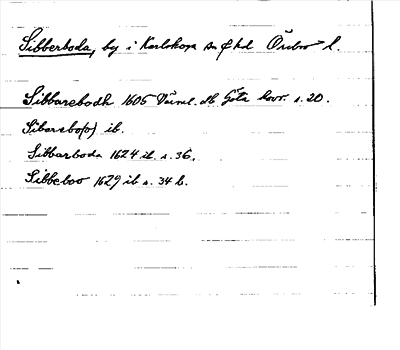 Sibberboda, by i Karlskoga sn o hd Örebro l.
Sibbarebodh 1605 Värml. dh Göta hovr. s. 20.
Sibarsbo(o) ib.
Sibbarboda 1624 ib. s. 36.
Sibbeboo 1629 ib s. 34 b.